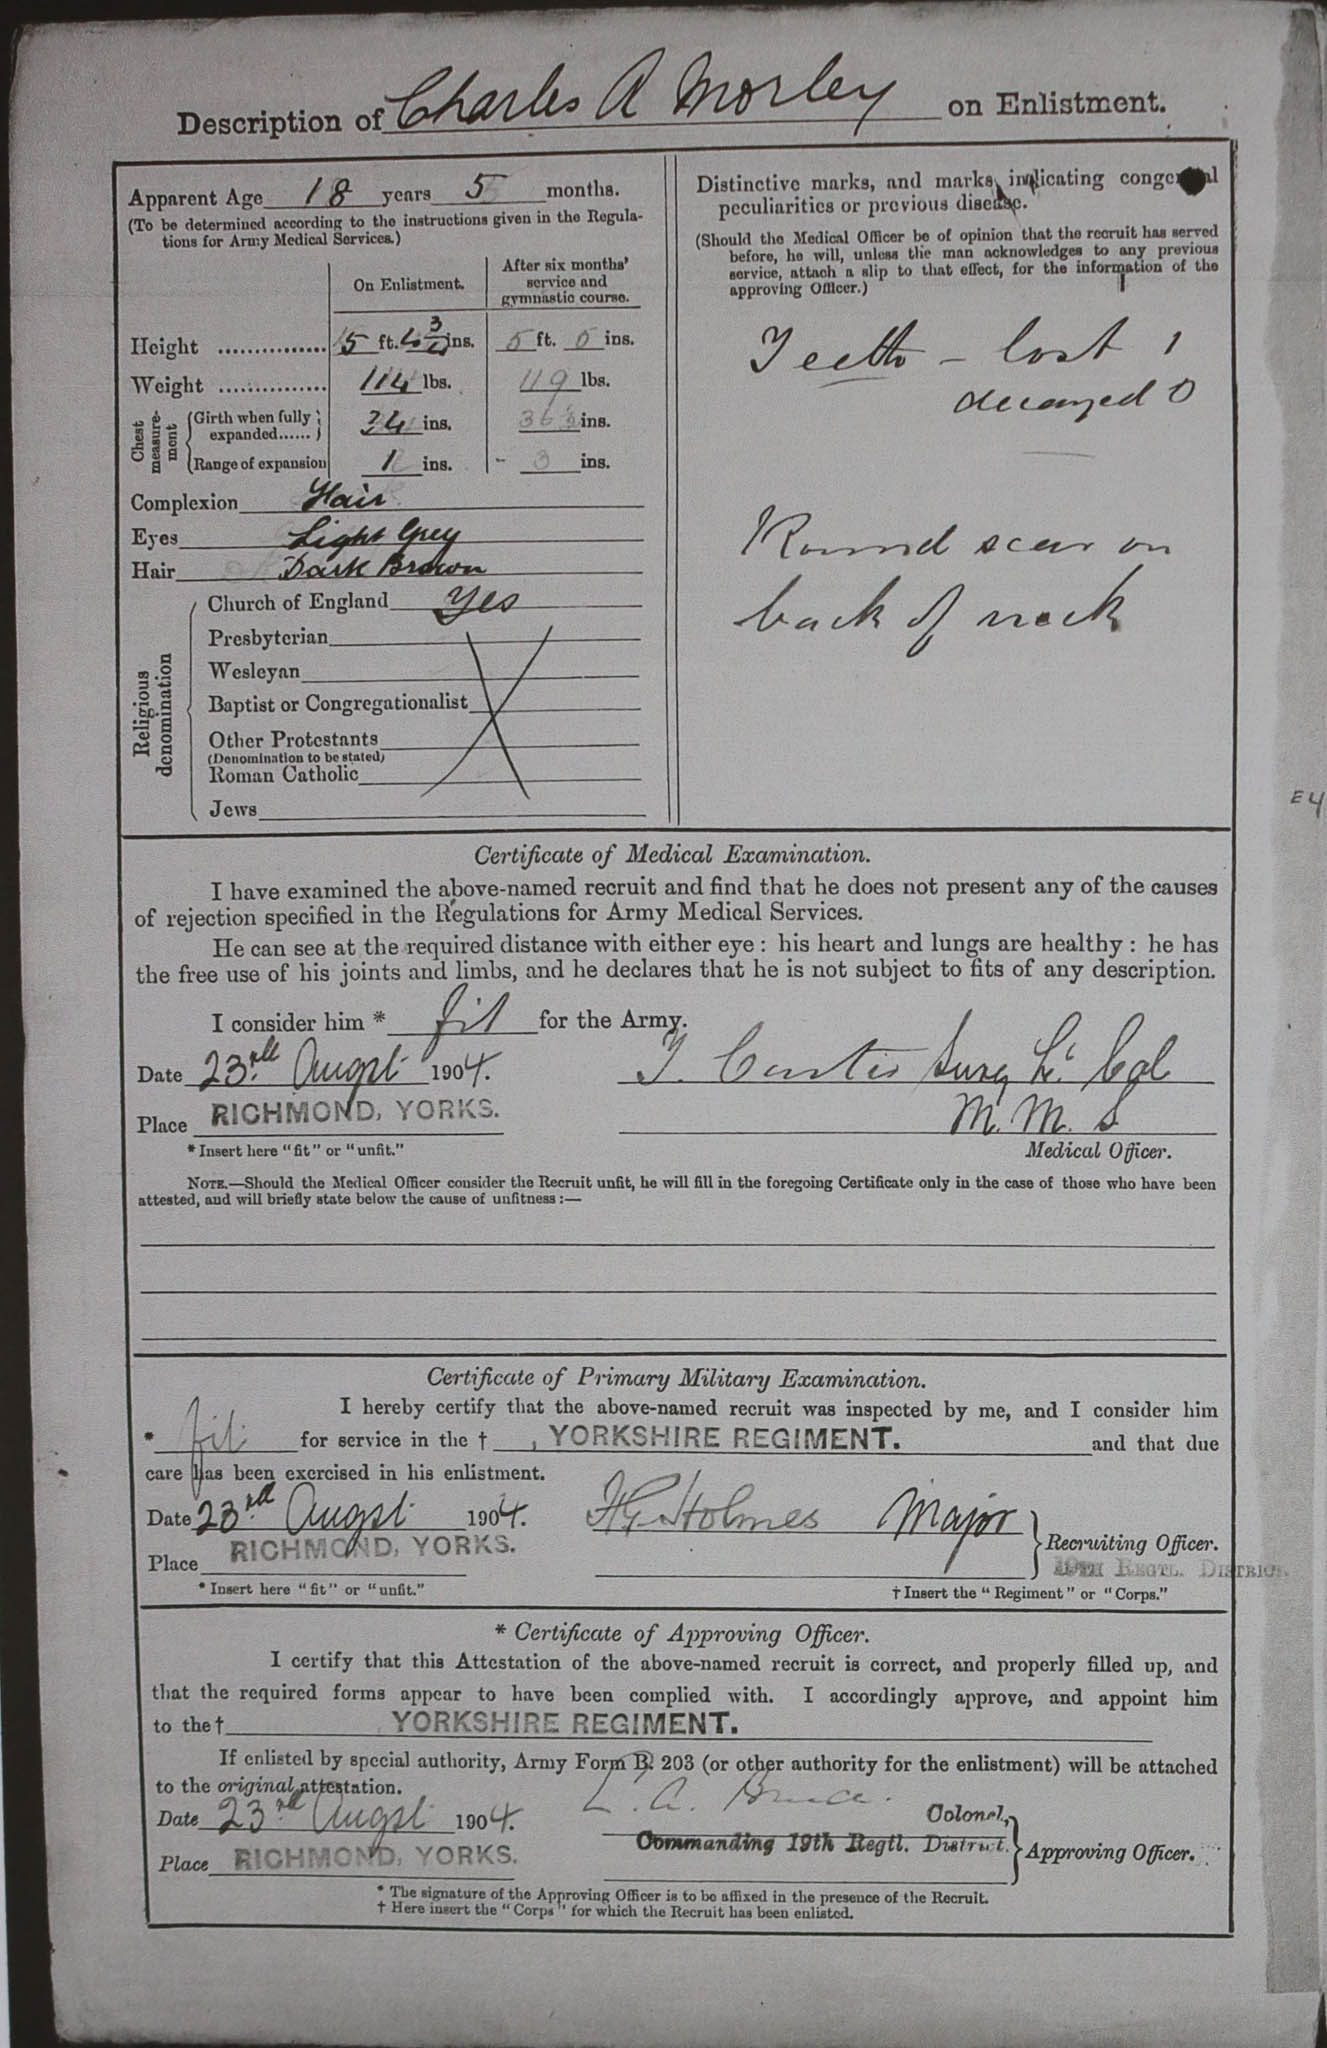 Description of Charles A Morley on Enlistment.
Apparent Age 18 years 5 months.
(To be determined according to the instructions given in the Regula-
tions for Army Medical Services.)
On Enlistment.
After six months'
service and
gymnastic course.
Height ............... 5 ft. 4 3/4 ins. 5 ft. 5 ins.
Weight ............... 114 lbs. 119 lbs.
Chest
measure-
ment
Girth when fully
expanded...... 34 ins. 36 ½ ins.
Range of expansion ins. 3 ins.
Complexion Hair
Eyes Light Grey
Hair Dark Brown
Religious
denomination
Church of England Yes
Presbyterian
Wesleyan
Baptist or Congregationalist
Other Protestants
(Denomination to be stated)
Roman Catholic
Jews
Distinctive marks, and marks indicating congenital
peculiarities or previous disease.
(Should the Medical Officer be of opinion that the recruit has served
before, he will, unless the man acknowledges to any previous
service, attach a slip to that effect, for the information of the
approving Officer.)
Teeth - lost 1
decayed 0
Round scar on
back of neck
E4
Certificate of Medical Examination.
I have examined the above-named recruit and find that he does not present any of the causes
of rejection specified in the Regulations for Army Medical Services.
He can see at the required distance with either eye : his heart and lungs are healthy : he has
the free use of his joints and limbs, and he declares that he is not subject to fits of any description.
I consider him * fit for the Army.
Date 23rd Augst 1904.
Curtis Surg Lt. Col
M. M. S
Place RICHMOND, YORKS.
* Insert here "fit" or "unfit."
Medical Officer.
NOTE.—Should the Medical Officer consider the Recruit unfit, he will fill in the foregoing Certificate only in the case of those who have been
attested, and will briefly state below the cause of unfitness :—
Certificate of Primary Military Examination.
I hereby certify that the above-named recruit was inspected by me, and I consider him
* fit for service in the † YORKSHIRE REGIMENT. and that due
care has been exercised in his enlistment.
Date 23rd Augst 1904. Holmes Major
Recruiting Officer.
Place RICHMOND, YORKS.
19TH REGTL. DISTRICT.
* Insert here "fit" or "unfit."
† Insert the "Regiment" or "Corps."
* Certificate of Approving Officer.
I certify that this Attestation of the above-named recruit is correct, and properly filled up, and
that the required forms appear to have been complied with. I accordingly approve, and appoint him
to the † YORKSHIRE REGIMENT.
If enlisted by special authority, Army Form B. 203 (or other authority for the enlistment) will be attached
to the original attestation.
Date 23rd Augst 1904.
Colonel,
Commanding 19th Regtl. District.
Place RICHMOND, YORKS.
Approving Officer.
* The signature of the Approving Officer is to be affixed in the presence of the Recruit.
† Here insert the "Corps" for which the Recruit has been enlisted.